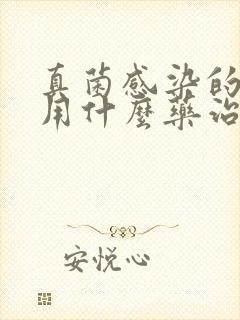 真菌感染的
用什麼藥治
安悦心